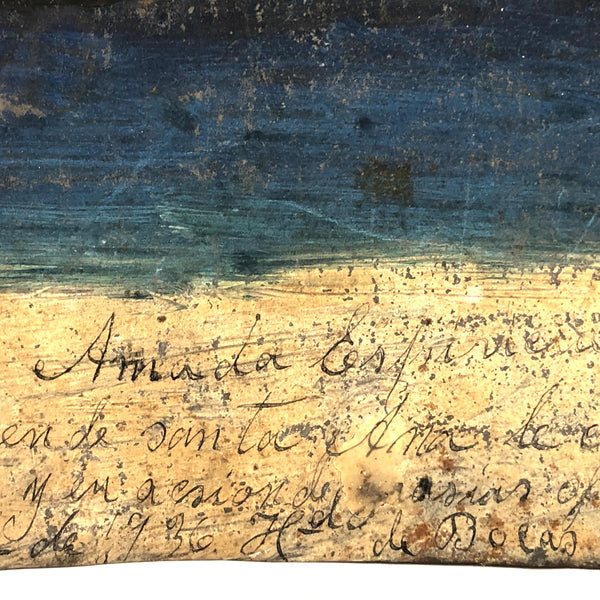 Amada Espine
en de santa Ana le
y en acsion de grasias of
de 1936 Hda de Bocas